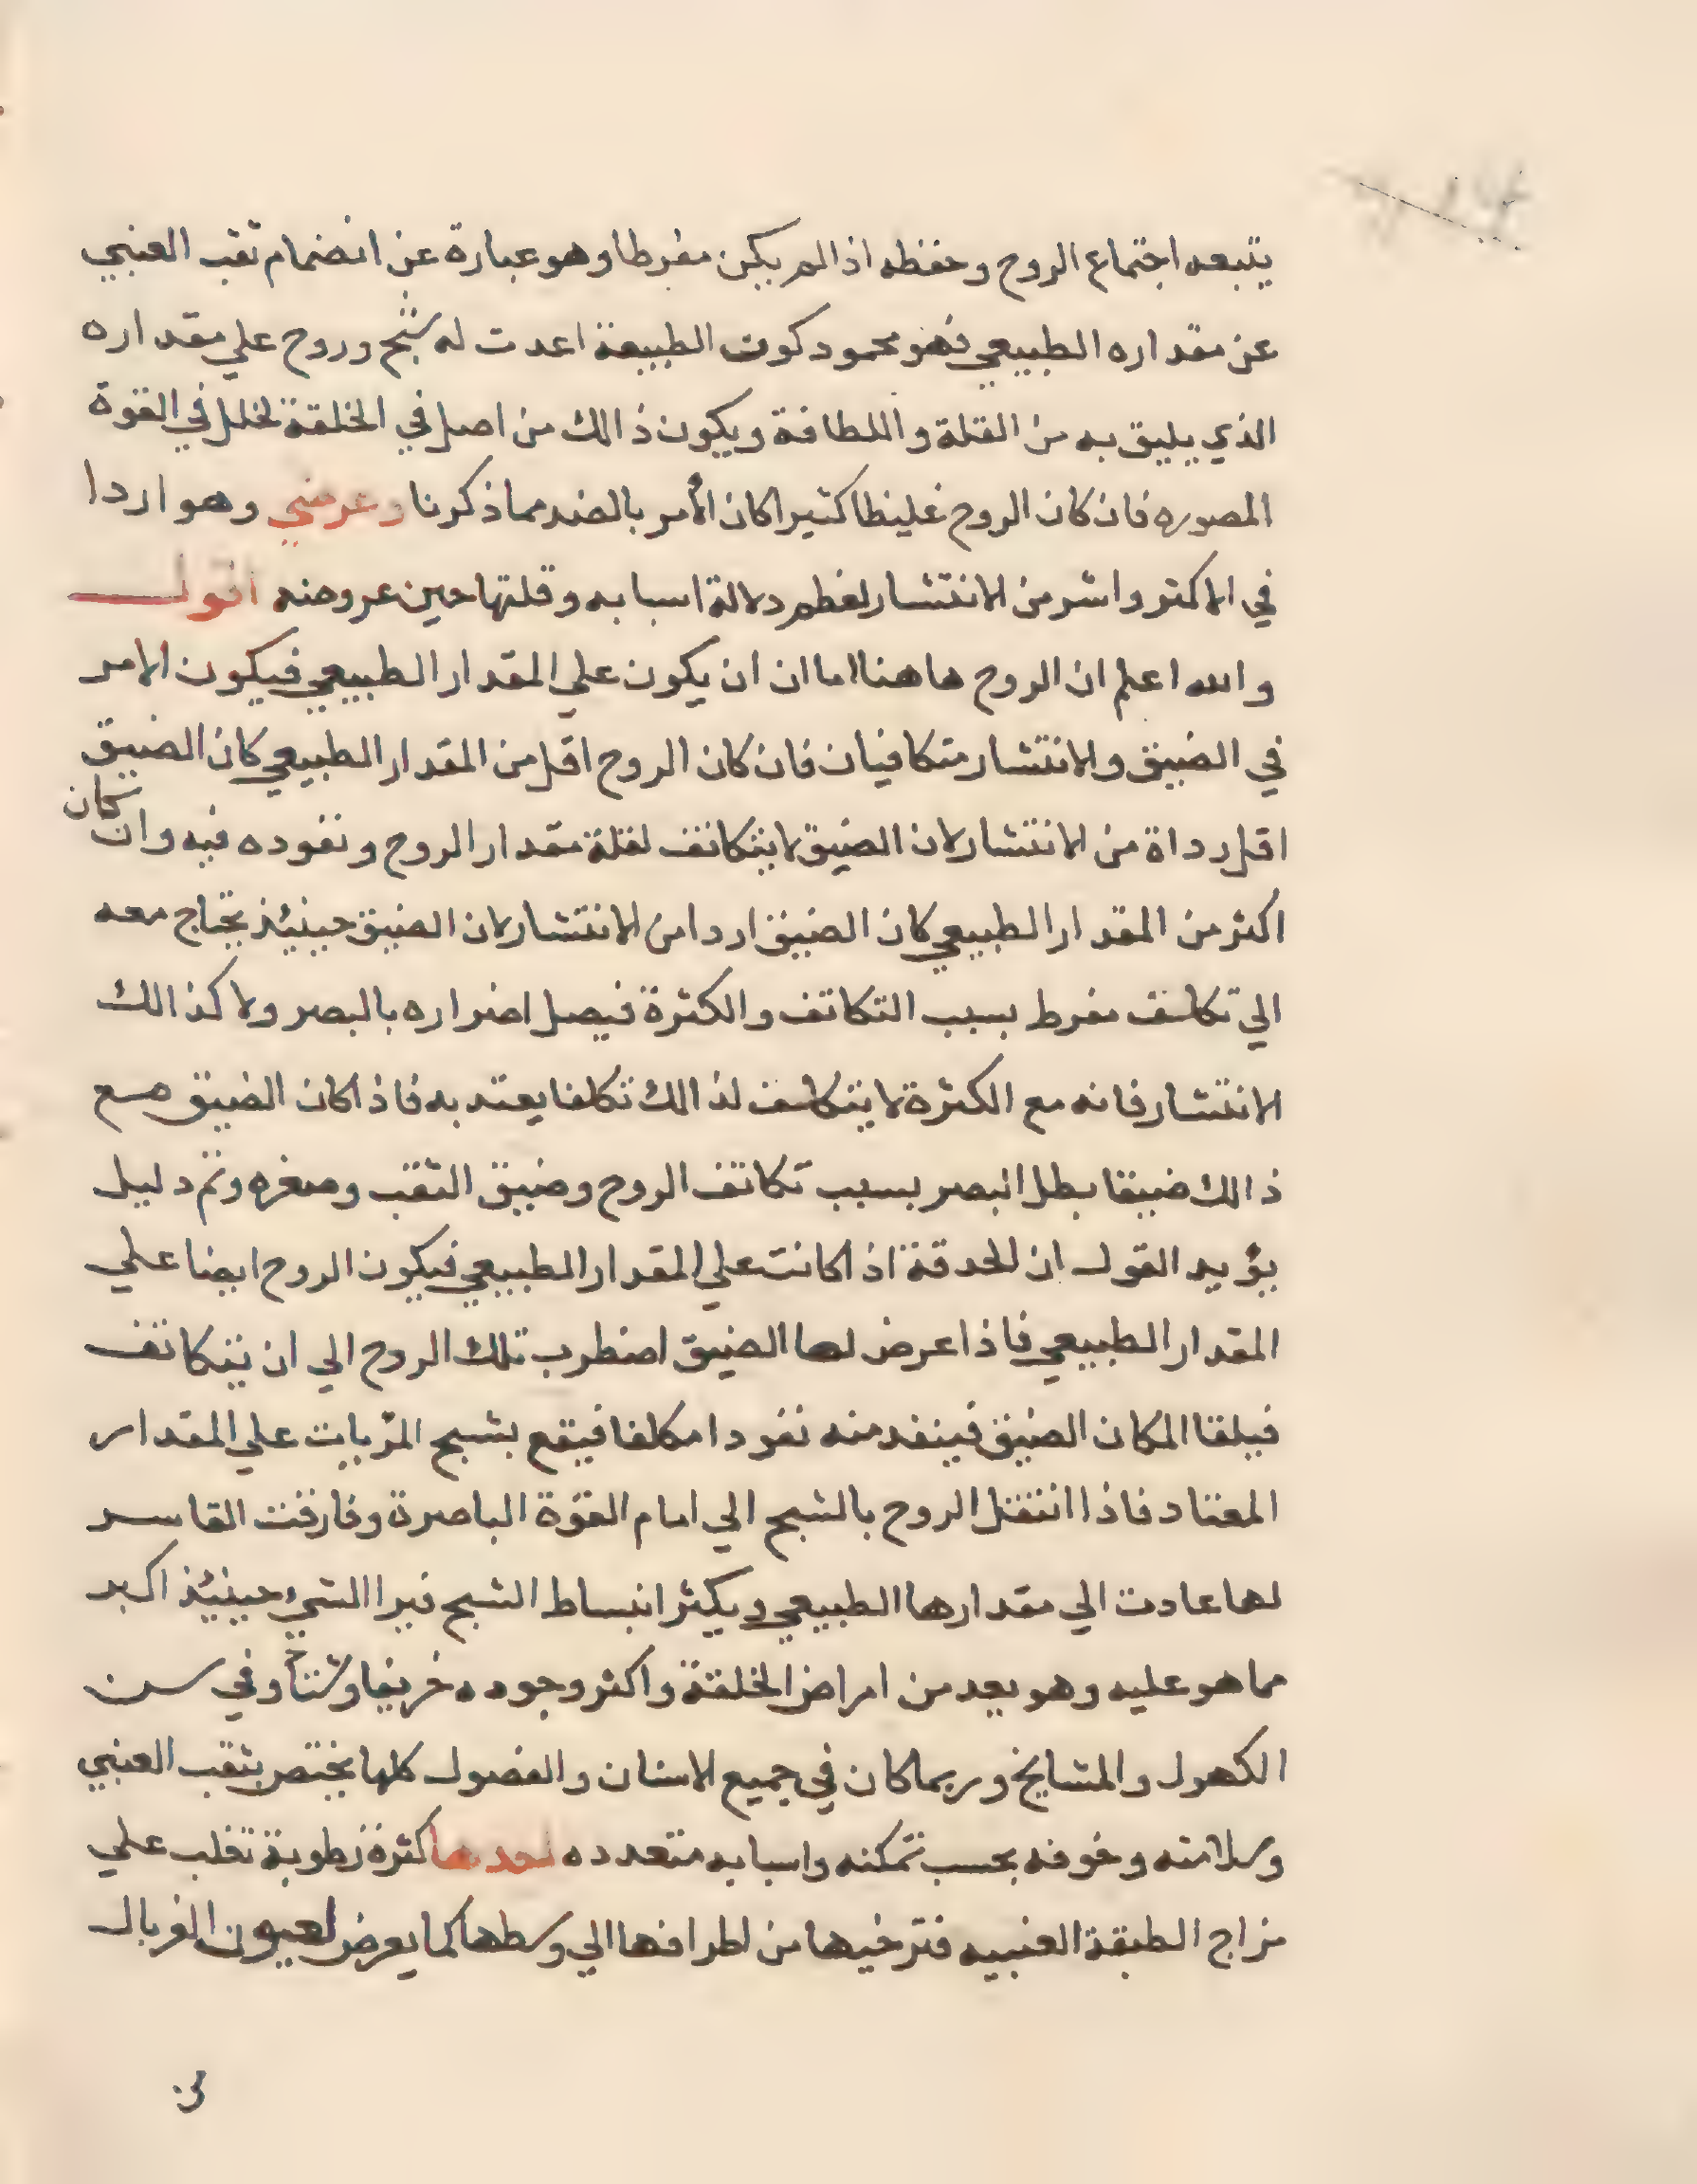 يتبعه اجتماع الروح وحفظه اذا لم يكن مفرطا وهو عبارة عن انضمام ثقب العنبي
عن مقداره الطبيعي فهو محمود كون الطبيعة اعدت له شبح وروح علي مقداره
الذي يليق به من القلة واللطافة ويكون ذالك من اصل في الخلقة لخلل في القوة
المصوره فان كان الروح غليظا كثيرا كان الأمر بالضد مما ذكرنا وعرضي وهو اردا
في الاكثر واشر من الانتشار لعظم دلالة اسبابه وقلتها حين عروضه اقول
والله اعلم ان الروح هاهنا اما ان ان يكون علي المقدار الطبيعي فيكون الامر
في الضيق والانتشار متكافيان فان كان الروح اقل من المقدار الطبيعي كان الضيق
اقل رداة من الانتشار لان الضيق لا يتكاثف لقلة مقدار الروح ونفوده فيه وان كان
اكثر من المقدار الطبيعي كان الضيق اردا من الانتشار لان الضيق حينيئذ يحتاج معه
الي تكاثف مفرط بسبب التكاثف والكثرة فيصل اضراره بالبصر ولا كذالك
الانتشار فانه مع الكثرة لا يتكاثف لذالك تكلفا يعتد به فاذا كان الضيق مع
ذالك ضيقا بطل البصر بسبب تكاثف الروح وضيق الثقب وصغره وثم دليل
يؤيد القول ان الحدقة اذا كانت علي المقدار الطبيعي فيكون الروح ايضا علي
المقدار الطبيعي فاذا عرض لها الضيق اضطرب تلك الروح الي ان يتكاثف
فيلقا المكان الضيق فينفد منه نفودا مكلفا فيقع بشبح المرّيات علي المقدار
المعتاد فاذا انتقل الروح بالشبح الي امام القوة الباصرة وفارقت القاسر
لها عادت الي مقدارها الطبيعي ويكثر انبساط الشبح فيرا الشيء حينيئذ اكبر
مما هو عليه وهو يعد من امراض الخلقة واكثر وجوده خريفا وشتاء وفي سن
الكهول والمشايخ وربما كان في جميع الاسنان والفصول كلها يختص بثقب العنبي
وسلامته وخوفه بحسب تمكنه واسبابه متعدده احدها كثرة رطوبة تغلب علي
مزاج الطبقة العنبيه فترخيها من اطرافها الي وسطها كما يعرض لعيون الغربال